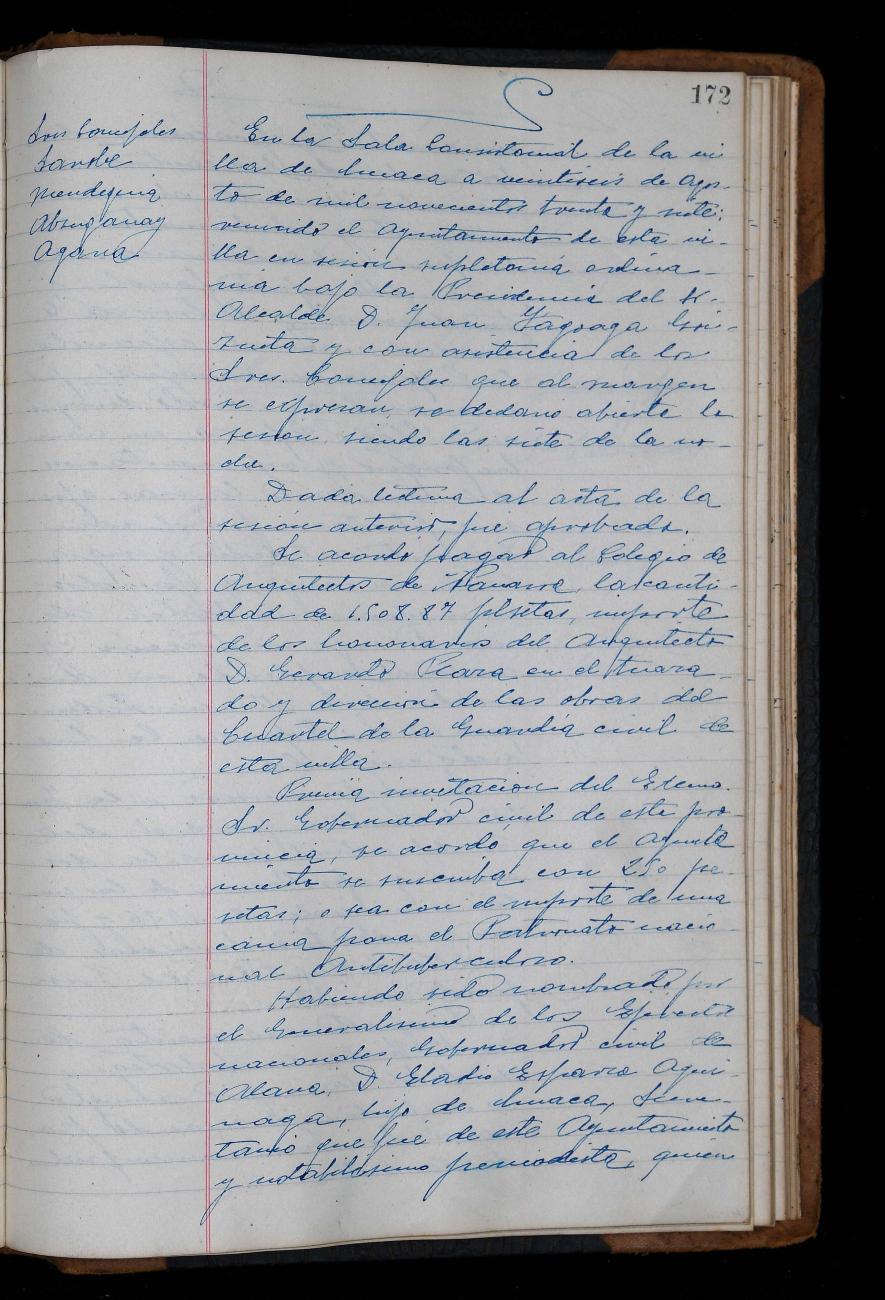 172
Sres Concejales
Mendiguia
Abrego
En la Sala Consistorial de la vi
lla de Lesaca a veintiseis de Agos-
to de mil novecientos treinta y siete;
reunido el Ayuntamiento de esta vi-
lla en sesión supletoria ordina-
ria bajo la Presidencia del Sr.
Alcalde D. Juan
y con asistencia de los
Sres. Concejales que al margen
se expresan, se declaró abierta la
sesion, siendo las siete de la no-
che.
Dada lectura al acta de la
sesión anterior, fue aprobada.
Se acordó pagar al Colegio de
Arquitectos de Navarra, la canti-
dad de 1.508.87 pesetas, importe
de los honorarios del Arquitecto
D. Gerardo Plaza en el traza-
do y dirección de las obras del
Cuartel de la Guardia civil de
esta villa.
Previa invitacion del Excmo.
Sr. Gobernador civil de esta pro-
vincia, se acordó que el Ayunta
miento se suscriba con 250 pe-
setas; o sea con el importe de una
cama para el Patronato nacio-
nal Antituberculoso.
Habiendo sido nombrado por
el Generalisimo de los Ejercitos
nacionales, Gobernador civil de
Alava, D. Eladio Esparza Agui-
naga, hijo de Lesaca, Secre-
tario que fué de este Ayuntamiento
y notabilisimo periodista, quien